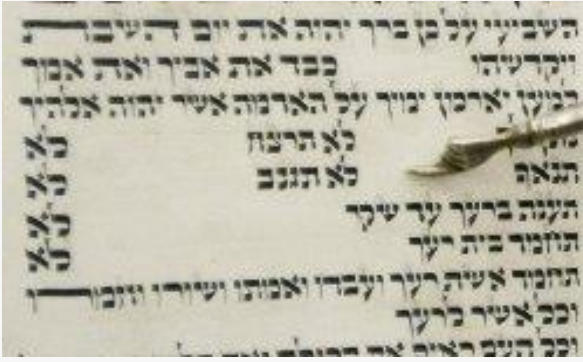 השביעי על כן ברך יהוה את יום השבת
ויקדשהו כבד את אביך ואת אמך
למען יארכון ימיך על האדמה אשר יהוה אלהיך
לא תרצח לא
תנאף לא תגנב לא
תענה ברעך עד שקר לא
תחמד בית רעך לא
תחמד אשת רעך ועבדו ואמתו ושורו וחמרו
וכל אשר לרעך
וכל העם ראים את